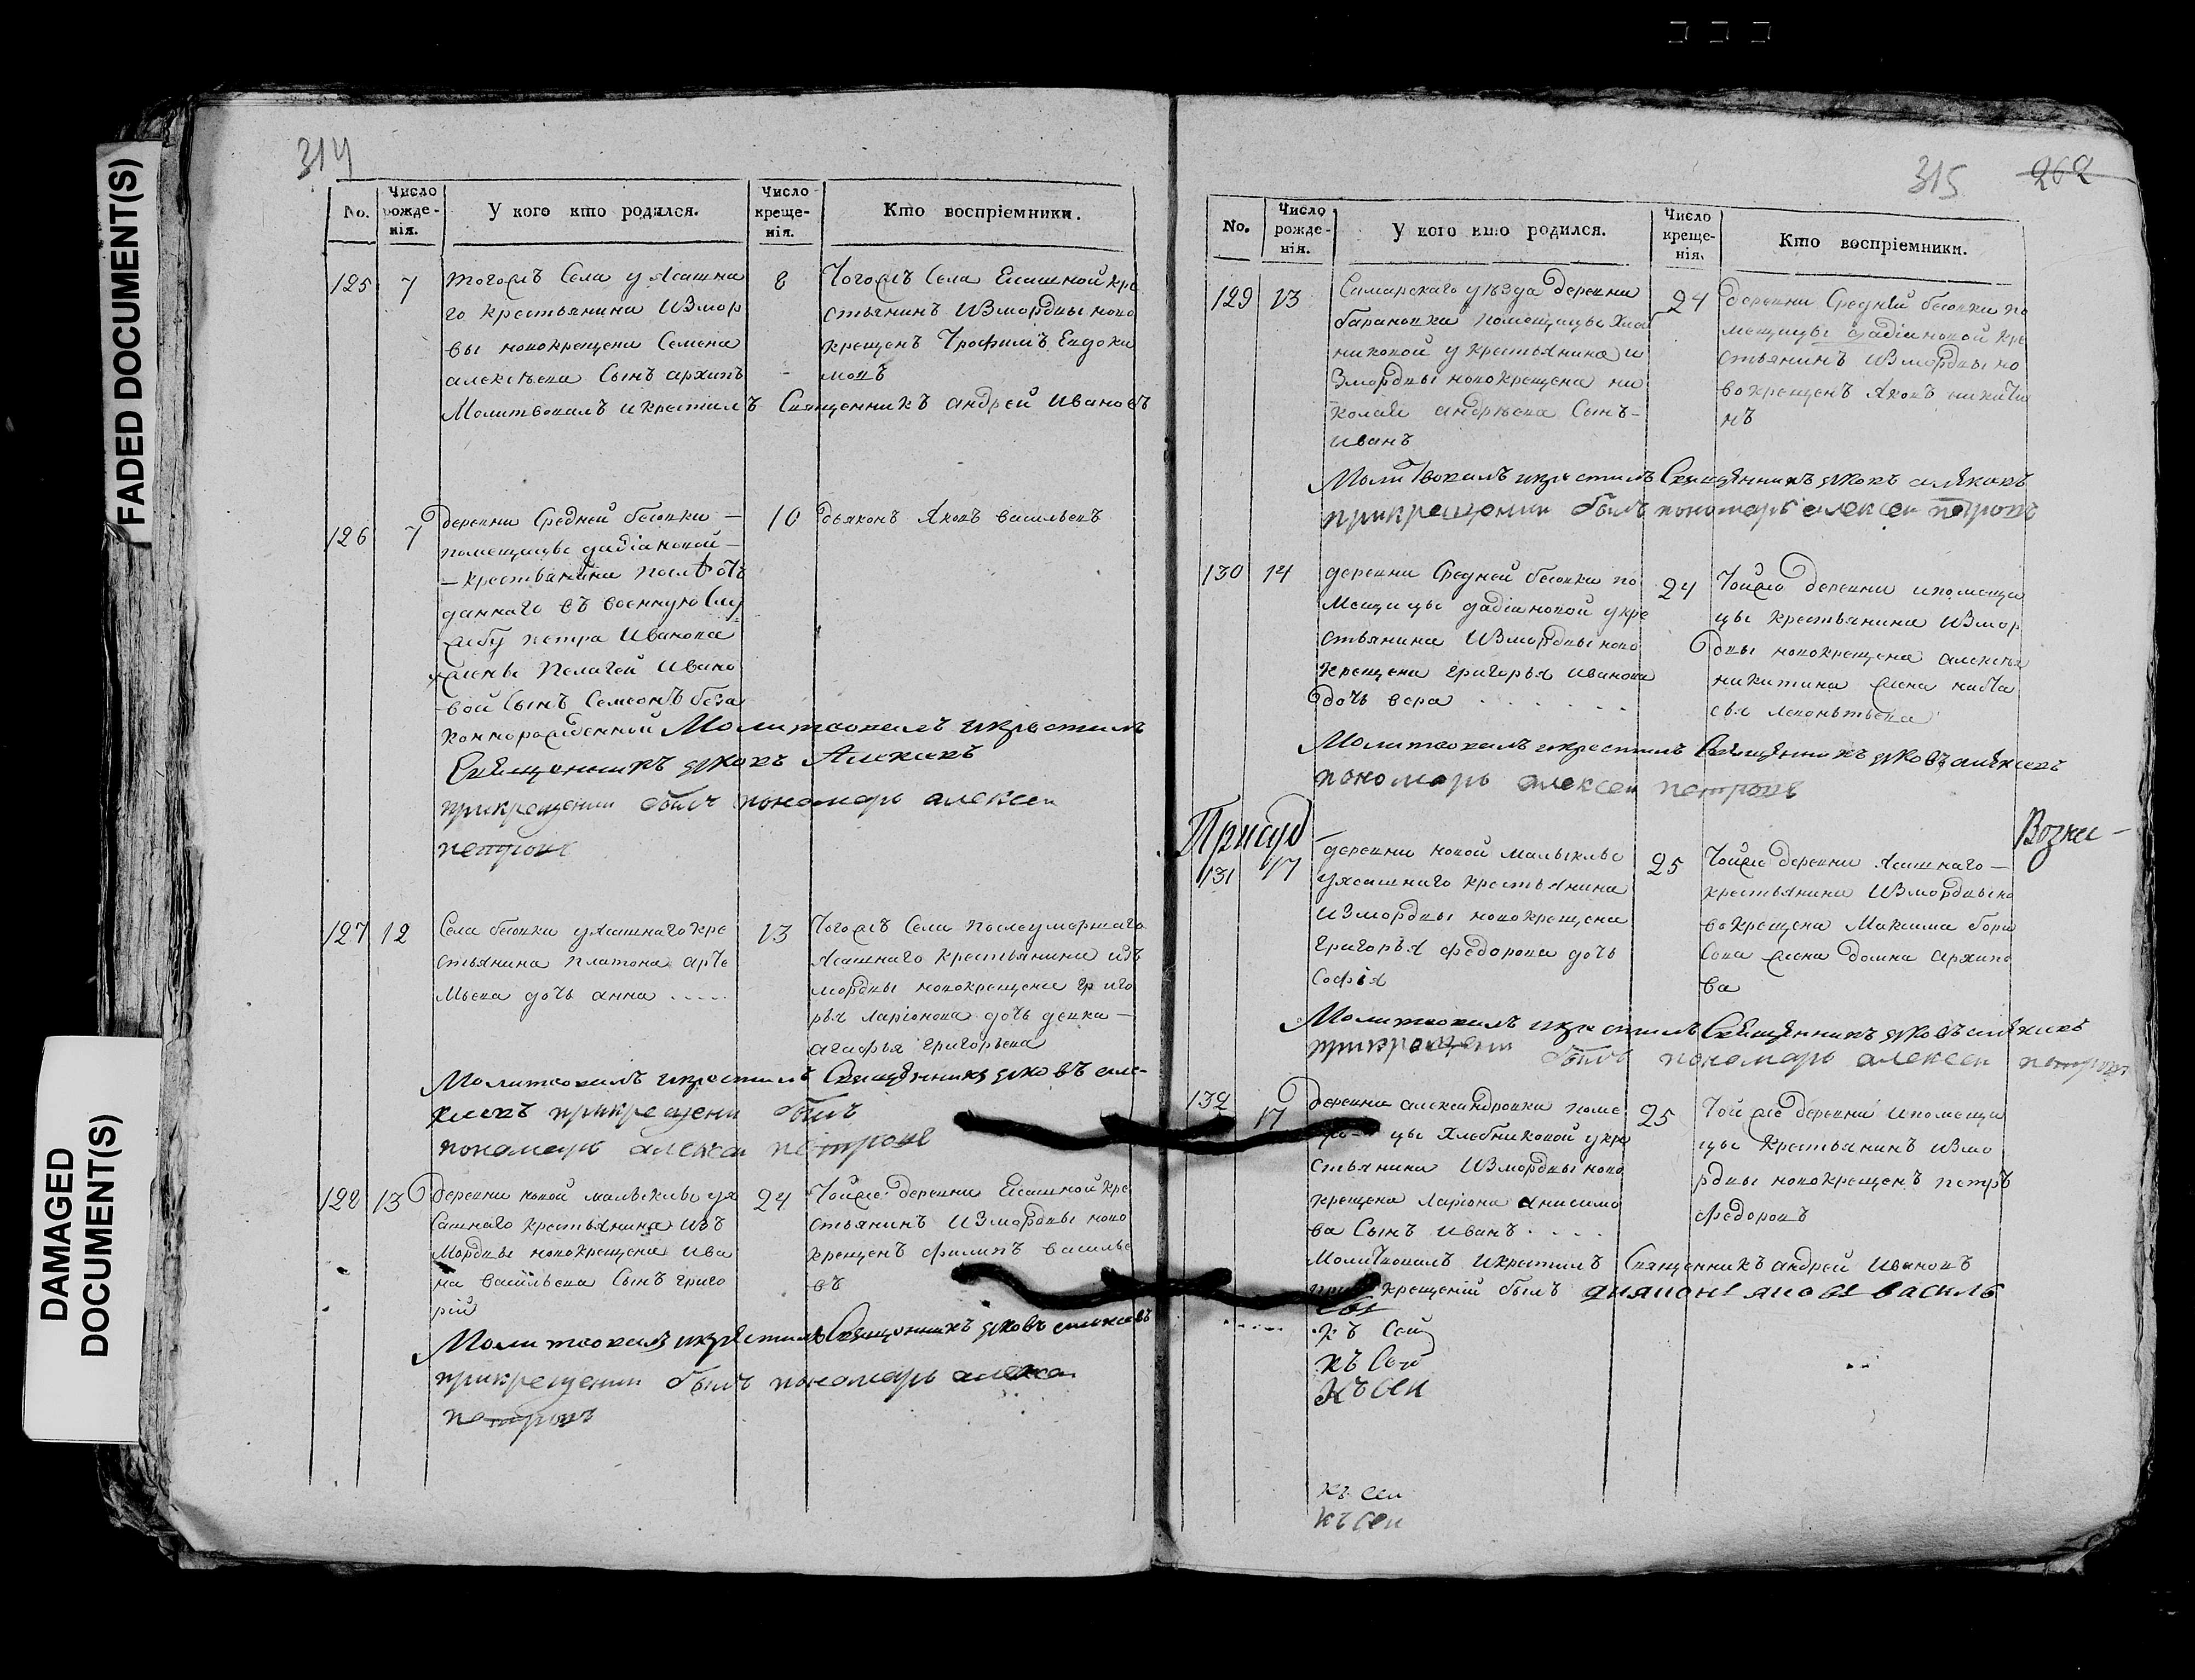 FADED DOCUMENT(S)
DAMAGED
DOCUMENT(S)
314
No.
Число рожде- нія.
У кого кто родился.
Число креще- нія.
Кто воспріемники.
125 7 8
тогожъ Села у Ясашна
го крестьянина Измор
вы новокрещена Семена
алексѣева Сынъ архипъ
Тогожъ Села Ясашной кре
стьянинъ Измордвы ново
крещенъ Трофимъ Евдоки
мовъ
Молитвовалъ икрестилъ Священникъ андрей Ивановъ
126 7 10
деревни Средней бесовки
помещицы дадiановой
крестьянина послѣ отъ
даннаго въ военную Слу
жбу петра Иванова
жены Пелагеи Ивано
вой Сынъ Семеонъ беза
коннорожденной Молитвовалъ икрестилъ
дьяконъ Яковъ васильевъ
Священникъ яковъ Алексевъ
прикрещении былъ пономарь алексеи
петровъ
127 12 13
Села бесовки уясашнаго кре
стьянина платона арте
мьева дочь анна
Тогожъ Села послеумершаго
Ясашнаго крестьянина изъ
мордвы новокрещена григо
рья ларiонова дочь девка
агафья григорьева
Молитвовалъ икрестилъ Священникъ яковъ але-
ксевъ прикрещени былъ
пономарь алексеи петровъ
128 13 24
деревни новой малыклы уя
сашнаго крестьянина изъ
Мордвы новокрещена ива
на васильева Сынъ григо
рiй
Тойже деревни Ясашной кре
стьянинъ Измордвы ново
крещенъ филипъ василье
въ
Молитвовалъ икрестилъ Священникъ яковъ алексевъ
прикрещении былъ пономарь алексеи
петровъ
315 262
No.
Число рожде- нія.
У кого кто родился.
Число креще- нія.
Кто воспріемники.
129 13 24
Самарскаго уѣзда деревни
барановки помещицы
никовой у крестьянина и
Змордвы новокрещена ни
колая андрѣева Сынъ
иванъ
деревни Средней бесовки по
мещицы дадiановой кре
стьянинъ Измордвы но
вокрещенъ Яковъ никити
нъ
Молитвовалъ икрестилъ Священникъ яковъ алексевъ
прикрещении былъ пономарь алексеи петровъ
130 14 24
деревни Средней бесовки по
мещицы дадiановой укре
стьянина Измордвы ново
крещена григорья иванова
дочь вера
Тойже деревни ипомещи
цы крестьянина Измор
двы новокрещена алексѣя
никитина жена
сья леонтьева
Молитвовалъ икрестилъ Священникъ яковъ алексевъ
пономарь алексеи петровъ
Присуд
Возне-
131 17 25
деревни новой малыклы
уясашнаго крестьянина
Измордвы новокрещена
григорья федорова дочь
Софiя
Тойже деревни Ясашнаго
крестьянина Измордвы но
вокрещена Максима бори
сова жена домна архипо
ва
Молитвовалъ икрестилъ Священникъ яковъ алексевъ
прикрещении былъ пономарь алексеи петровъ
132 17 25
деревни александровки поме
цы Хлебниковой укре
стьянина Измордвы ново
крещена ларiона анисимо
ва Сынъ иванъ
Тойже деревни ипомещи
цы крестьянинъ измо
рдвы новокрещенъ петръ
федоровъ
Молитвовалъ икрестилъ Священникъ андрей Ивановъ
при крещенiй былъ
къ сей
къ сей
къ сей
къ сей
къ сей